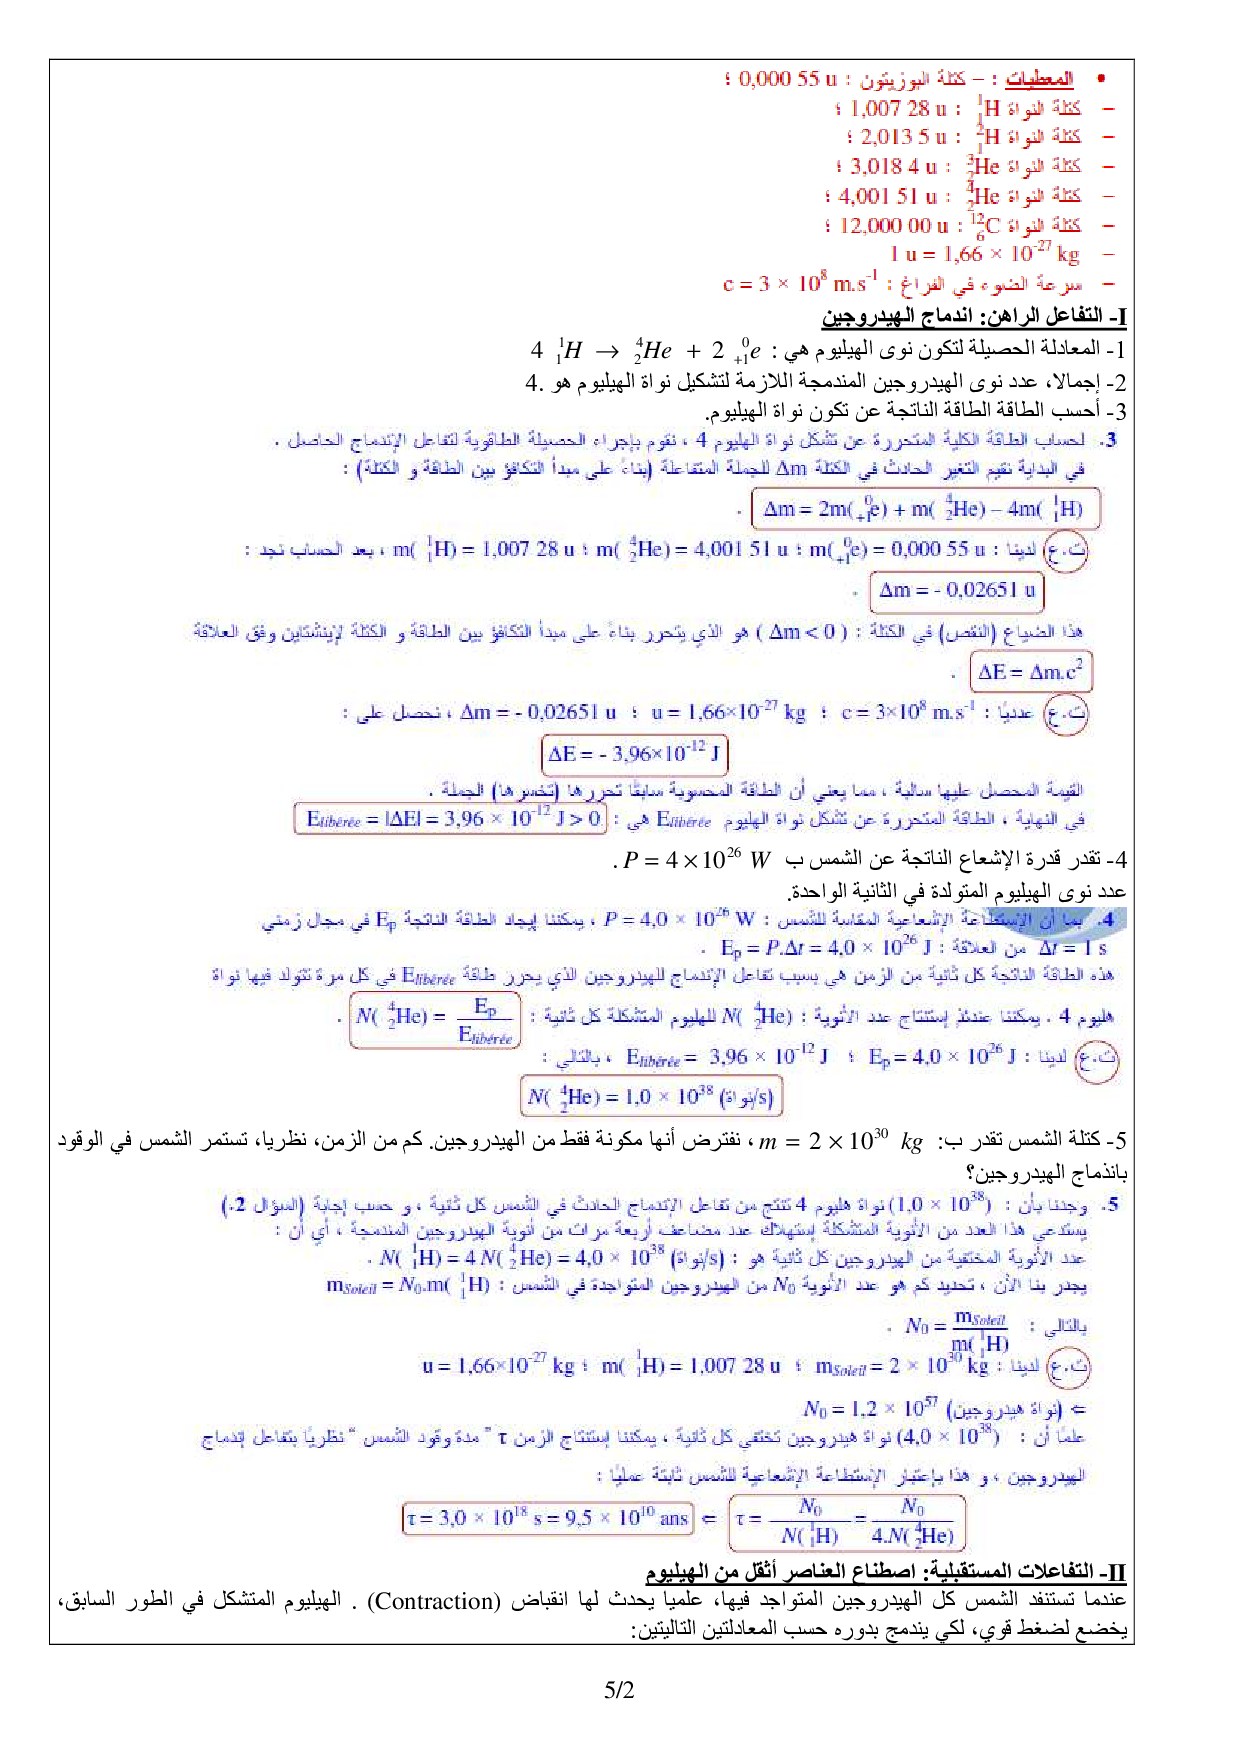 • المعطيات : – كتلة البوزيتون : 0,000 55 u ؛
– كتلة النواة ¹₁H : 1,007 28 u ؛
– كتلة النواة ²₁H : 2,013 5 u ؛
– كتلة النواة ³₂He : 3,018 4 u ؛
– كتلة النواة ⁴₂He : 4,001 51 u ؛
– كتلة النواة ¹²₆C : 12,000 00 u ؛
– 1 u = 1,66 × 10⁻²⁷ kg
– سرعة الضوء في الفراغ : c = 3 × 10⁸ m.s⁻¹
I- التفاعل الراهن: اندماج الهيدروجين
1- المعادلة الحصيلة لتكون نوى الهيليوم هي : 4 ¹₁H → ⁴₂He + 2 ⁰₊₁e
2- إجمالا، عدد نوى الهيدروجين المندمجة اللازمة لتشكيل نواة الهيليوم هو .4
3- أحسب الطاقة الطاقة الناتجة عن تكون نواة الهيليوم.
3. لحساب الطاقة الكلية المتحررة عن تشكل نواة الهليوم 4 ، نقوم بإجراء الحصيلة الطاقوية لتفاعل الإندماج الحاصل .
في البداية نقيم التغير الحادث في الكتلة Δm للجملة المتفاعلة (بناءً على مبدأ التكافؤ بين الطاقة و الكتلة) :
Δm = 2m(⁰₊₁e) + m(⁴₂He) – 4m(¹₁H) .
ت.ع لدينا : m(⁰₊₁e) = 0,000 55 u ؛ m(⁴₂He) = 4,001 51 u ؛ m(¹₁H) = 1,007 28 u ، بعد الحساب نجد :
Δm = - 0,02651 u .
هذا الضياع (النقص) في الكتلة : ( Δm < 0 ) هو الذي يتحرر بناءً على مبدأ التكافؤ بين الطاقة و الكتلة لإينشتاين وفق العلاقة
ΔE = Δm.c² .
ت.ع عدديًا : c = 3×10⁸ m.s⁻¹ ؛ u = 1,66×10⁻²⁷ kg ؛ Δm = - 0,02651 u ، نحصل على :
ΔE = - 3,96×10⁻¹² J
القيمة المحصل عليها سالبة ، مما يعني أن الطاقة المحسوبة سابقًا تحررها (تخسرها) الجملة .
في النهاية ، الطاقة المتحررة عن تشكل نواة الهليوم E_libérée هي : E_libérée = |ΔE| = 3,96 × 10⁻¹² J > 0
4- تقدر قدرة الإشعاع الناتجة عن الشمس ب P = 4×10²⁶ W .
عدد نوى الهيليوم المتولدة في الثانية الواحدة.
4. بما أن الإستطاعة الإشعاعية المقاسة للشمس : P = 4,0 × 10²⁶ W ، يمكننا إيجاد الطاقة الناتجة Eₚ في مجال زمني
Δt = 1 s من العلاقة : Eₚ = P.Δt = 4,0 × 10²⁶ J .
هذه الطاقة الناتجة كل ثانية من الزمن هي بسبب تفاعل الإندماج للهيدروجين الذي يحرر طاقة E_libérée في كل مرة تتولد فيها نواة
هليوم 4 . يمكننا عندئذ إستنتاج عدد الأنوية : N(⁴₂He) للهليوم المتشكلة كل ثانية : N(⁴₂He) = Eₚ / E_libérée .
ت.ع لدينا : Eₚ = 4,0 × 10²⁶ J ؛ E_libérée = 3,96 × 10⁻¹² J ، بالتالي :
N(⁴₂He) = 1,0 × 10³⁸ (نواة/s)
5- كتلة الشمس تقدر ب: m = 2 × 10³⁰ kg ، نفترض أنها مكونة فقط من الهيدروجين. كم من الزمن، نظريا، تستمر الشمس في الوقود
بانذماج الهيدروجين؟
5. وجدنا بأن : (1,0 × 10³⁸) نواة هليوم 4 تنتج من تفاعل الإندماج الحادث في الشمس كل ثانية ، و حسب إجابة (السؤال 2.)
يستدعي هذا العدد من الأنوية المتشكلة إستهلاك عدد مضاعف أربعة مرات من أنوية الهيدروجين المندمجة ، أي أن :
عدد الأنوية المختفية من الهيدروجين كل ثانية هو : N(¹₁H) = 4 N(⁴₂He) = 4,0 × 10³⁸ (نواة/s) .
يجدر بنا الأن ، تحديد كم هو عدد الأنوية N₀ من الهيدروجين المتواجدة في الشمس : m_Soleil = N₀.m(¹₁H)
بالتالي : N₀ = m_Soleil / m(¹₁H) .
ت.ع لدينا : m_Soleil = 2 × 10³⁰ kg ؛ m(¹₁H) = 1,007 28 u ؛ u = 1,66×10⁻²⁷ kg
⇐ N₀ = 1,2 × 10⁵⁷ (نواة هيدروجين)
علمًا أن : (4,0 × 10³⁸) نواة هيدروجين تختفي كل ثانية ، يمكننا إستنتاج الزمن τ " مدة وقود الشمس " نظريًا بتفاعل إندماج
الهيدروجين ، و هذا بإعتبار الإستطاعة الإشعاعية للشمس ثابتة عمليًا :
τ = N₀ / N(¹₁H) = N₀ / 4.N(⁴₂He) ⇐ τ = 3,0 × 10¹⁸ s = 9,5 × 10¹⁰ ans
II- التفاعلات المستقبلية: اصطناع العناصر أثقل من الهيليوم
عندما تستنفد الشمس كل الهيدروجين المتواجد فيها، علميا يحدث لها انقباض (Contraction) . الهيليوم المتشكل في الطور السابق،
يخضع لضغط قوي، لكي يندمج بدوره حسب المعادلتين التاليتين:
5/2